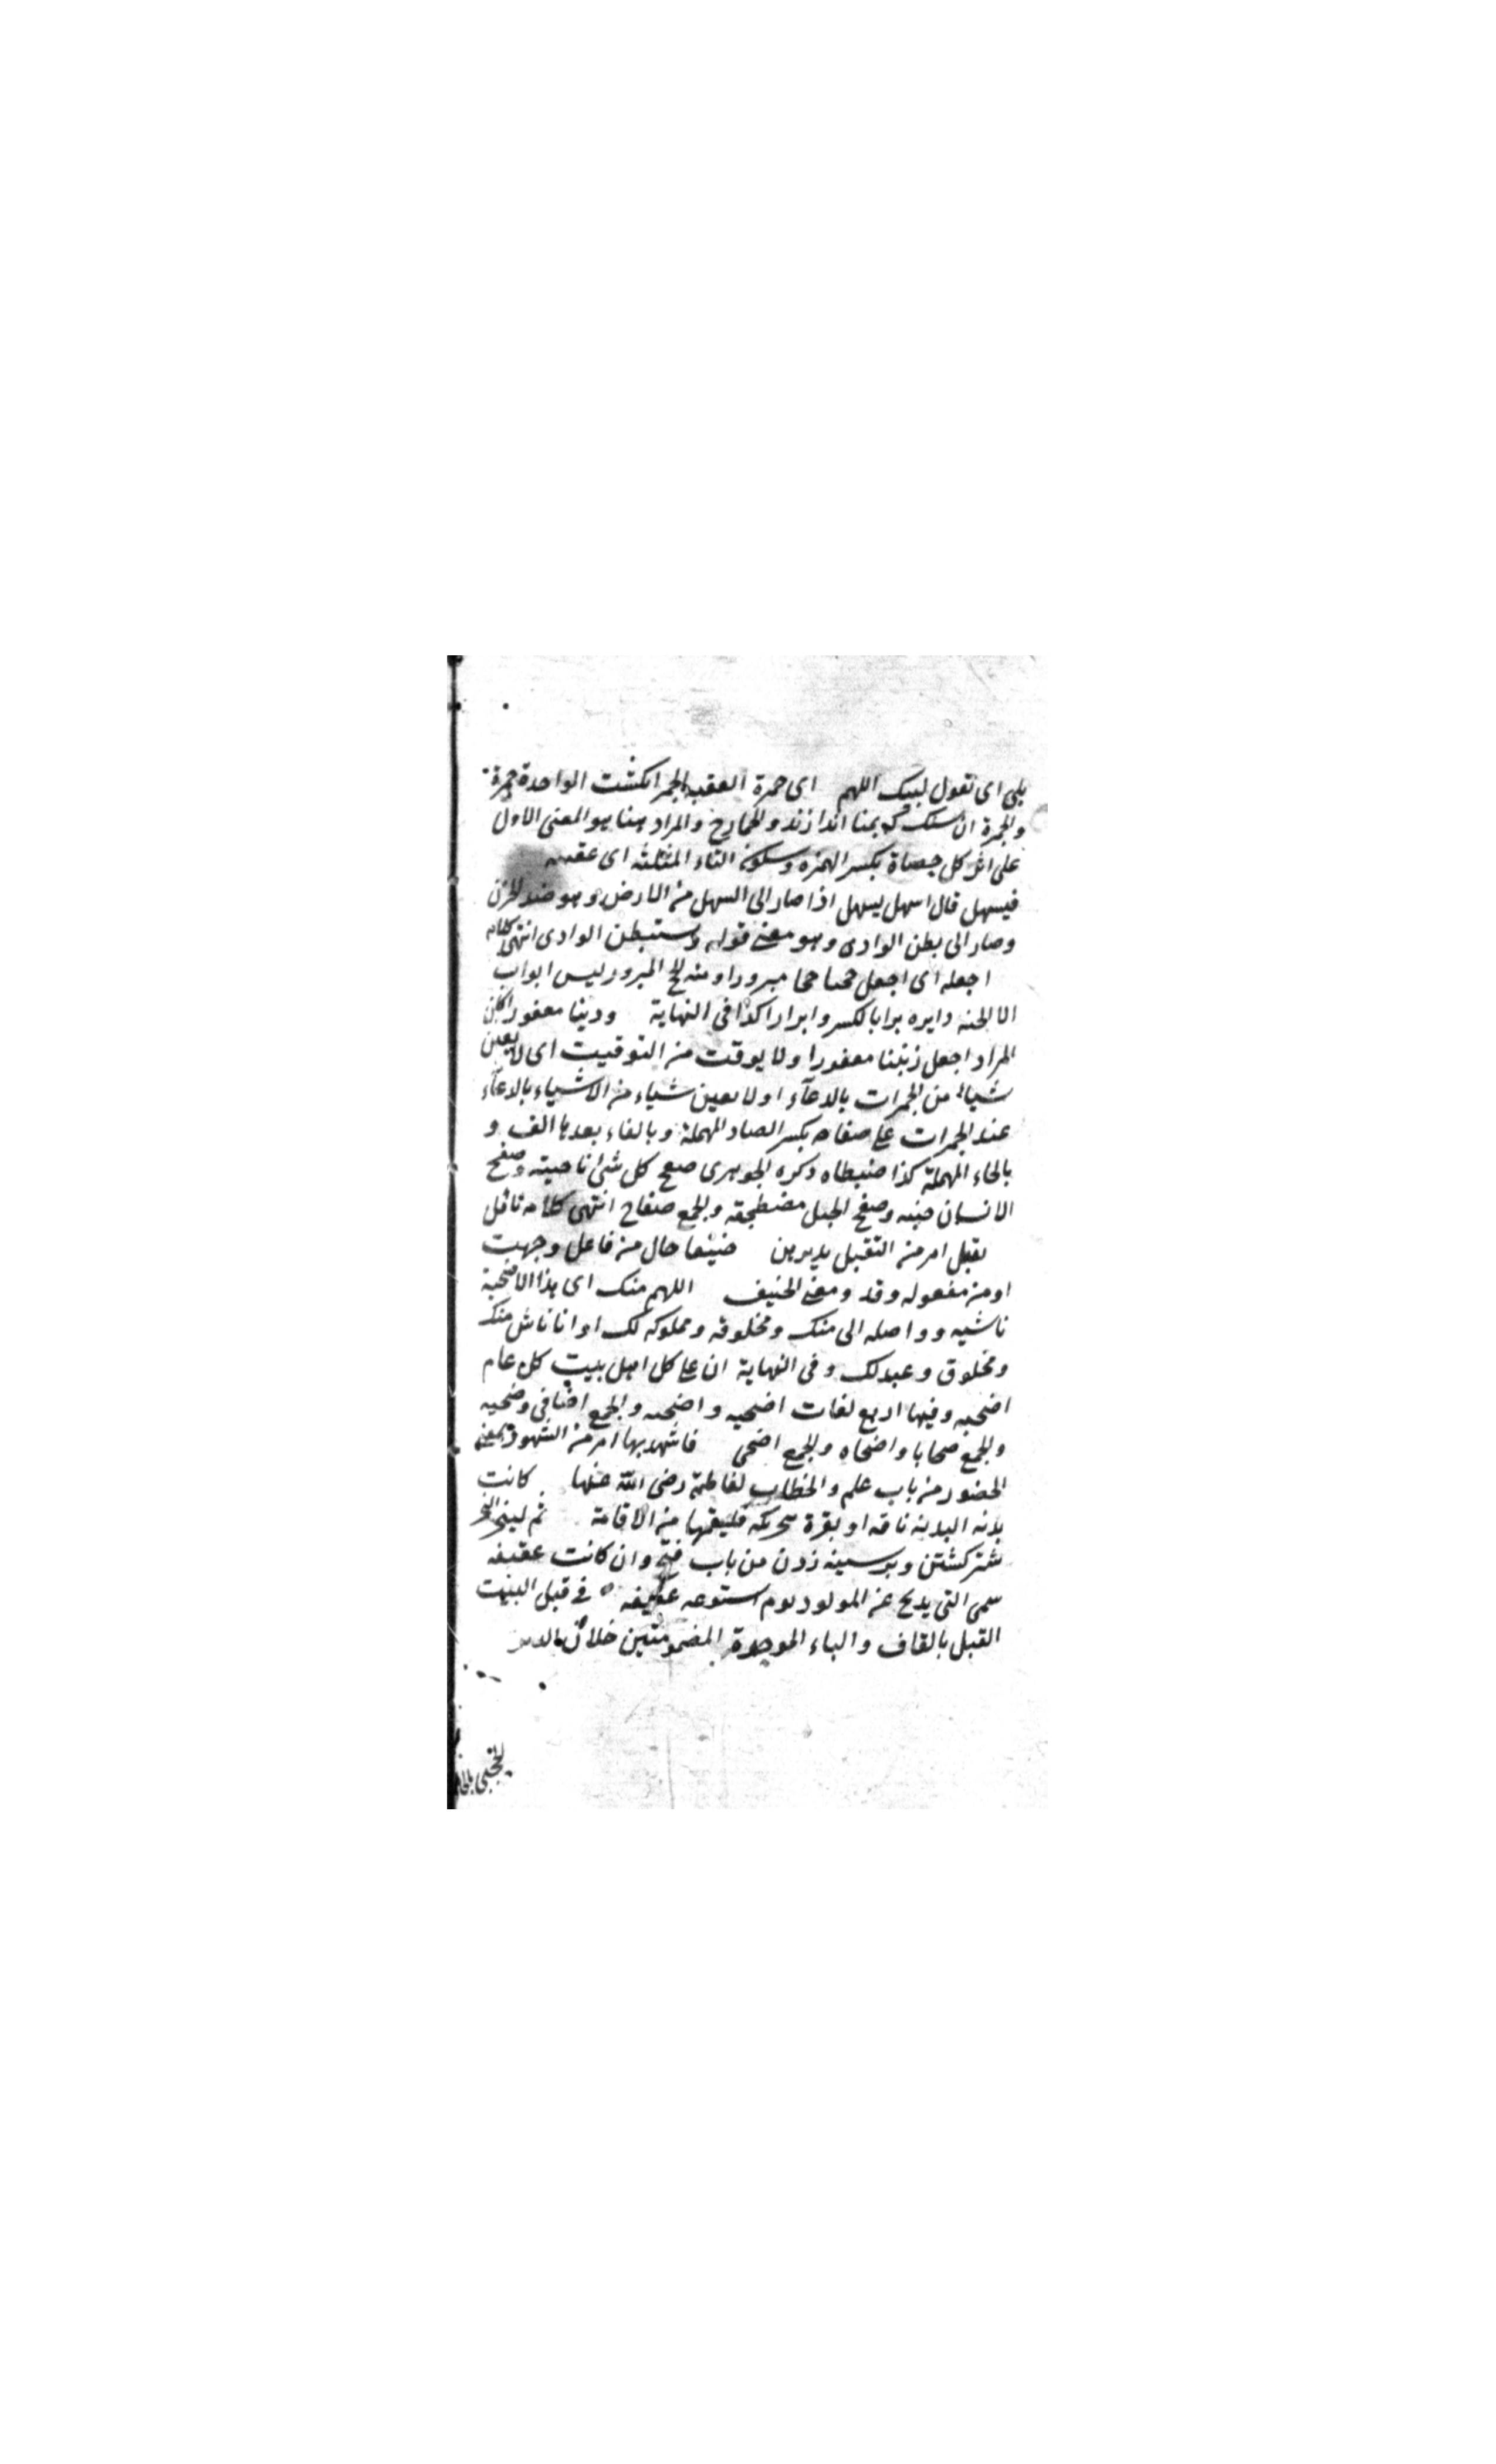 يلبى اى تقول لبيك اللهم اى جمرة العقبة الجمر انكشت الواحدة جمرة
والجمرة ان سنك كه بمنا اندازند والجمارح والمراد هنا هو المعنى الاول
على اثر كل حصاة بكسر الهمزه وسكون الثاء المثلثة اى عقيب
فيسهل قال اسهل يسهل اذا صار الى السهل من الارض وهو ضد الحزن
وصار الى بطن الوادى وهو معنى قوله وستبطن الوادى انتهى كلامه
اجعله اى اجعل حجنا حجا مبرورا ومنه الحج المبرور ليس ابواب
الا الجنه دايره برا بالكسر وابرارا كذا فى النهاية وذنبا مغفورا كان
المراد اجعل ذنبنا مغفورا ولا يوقت من التوقيت اى لا يعين
شياء من الجمرات بالدعآء او لا يعين شياء من الاشياء بالدعآء
عند الجمرات على صفاحه بكسر الصاد المهملة وبالفاء بعدها الف و
بالحاء المهملة كذا ضبطاه ذكره الجوهرى صفح كل شئ ناحيته وصفح
الانسان جنبه وصفح الجبل مضطجعه والجمع صفاح انتهى كلامه تامل
تقبل امر من التقبل پذيرفتن حنيفا حال من فاعل وجهت
او من مفعوله وقد ومعنى الحنيف اللهم منك اى هذا الاضحية
ناشيه وواصله الى منك ومخلوقه ومملوكه لك او انا ناش منك
ومخلوق وعبد لك وفى النهاية ان على كل اهل بيت كل عام
اضحيه وفيها اربع لغات اضحيه واضحيه والجمع اضاحى وضحيه
والجمع ضحايا واضحاه والجمع اضحى فاشهد بها امر من الشهود بمعنى
الحضور من باب علم والخطاب لفاطمة رضى الله عنها كانت
بدنه البدنة ناقه او بقرة تحركه فليقمها من الاقامة ثم لينحر النحر
شتر كشتن وبر سينه زدن من باب فتح وان كانت عقيقه
سمى التى يذبح عن المولود يوم اسبوعه عقيقه فى قبل البيت
القبل بالقاف والباء الموحدة المضمومتين خلاف الدبر